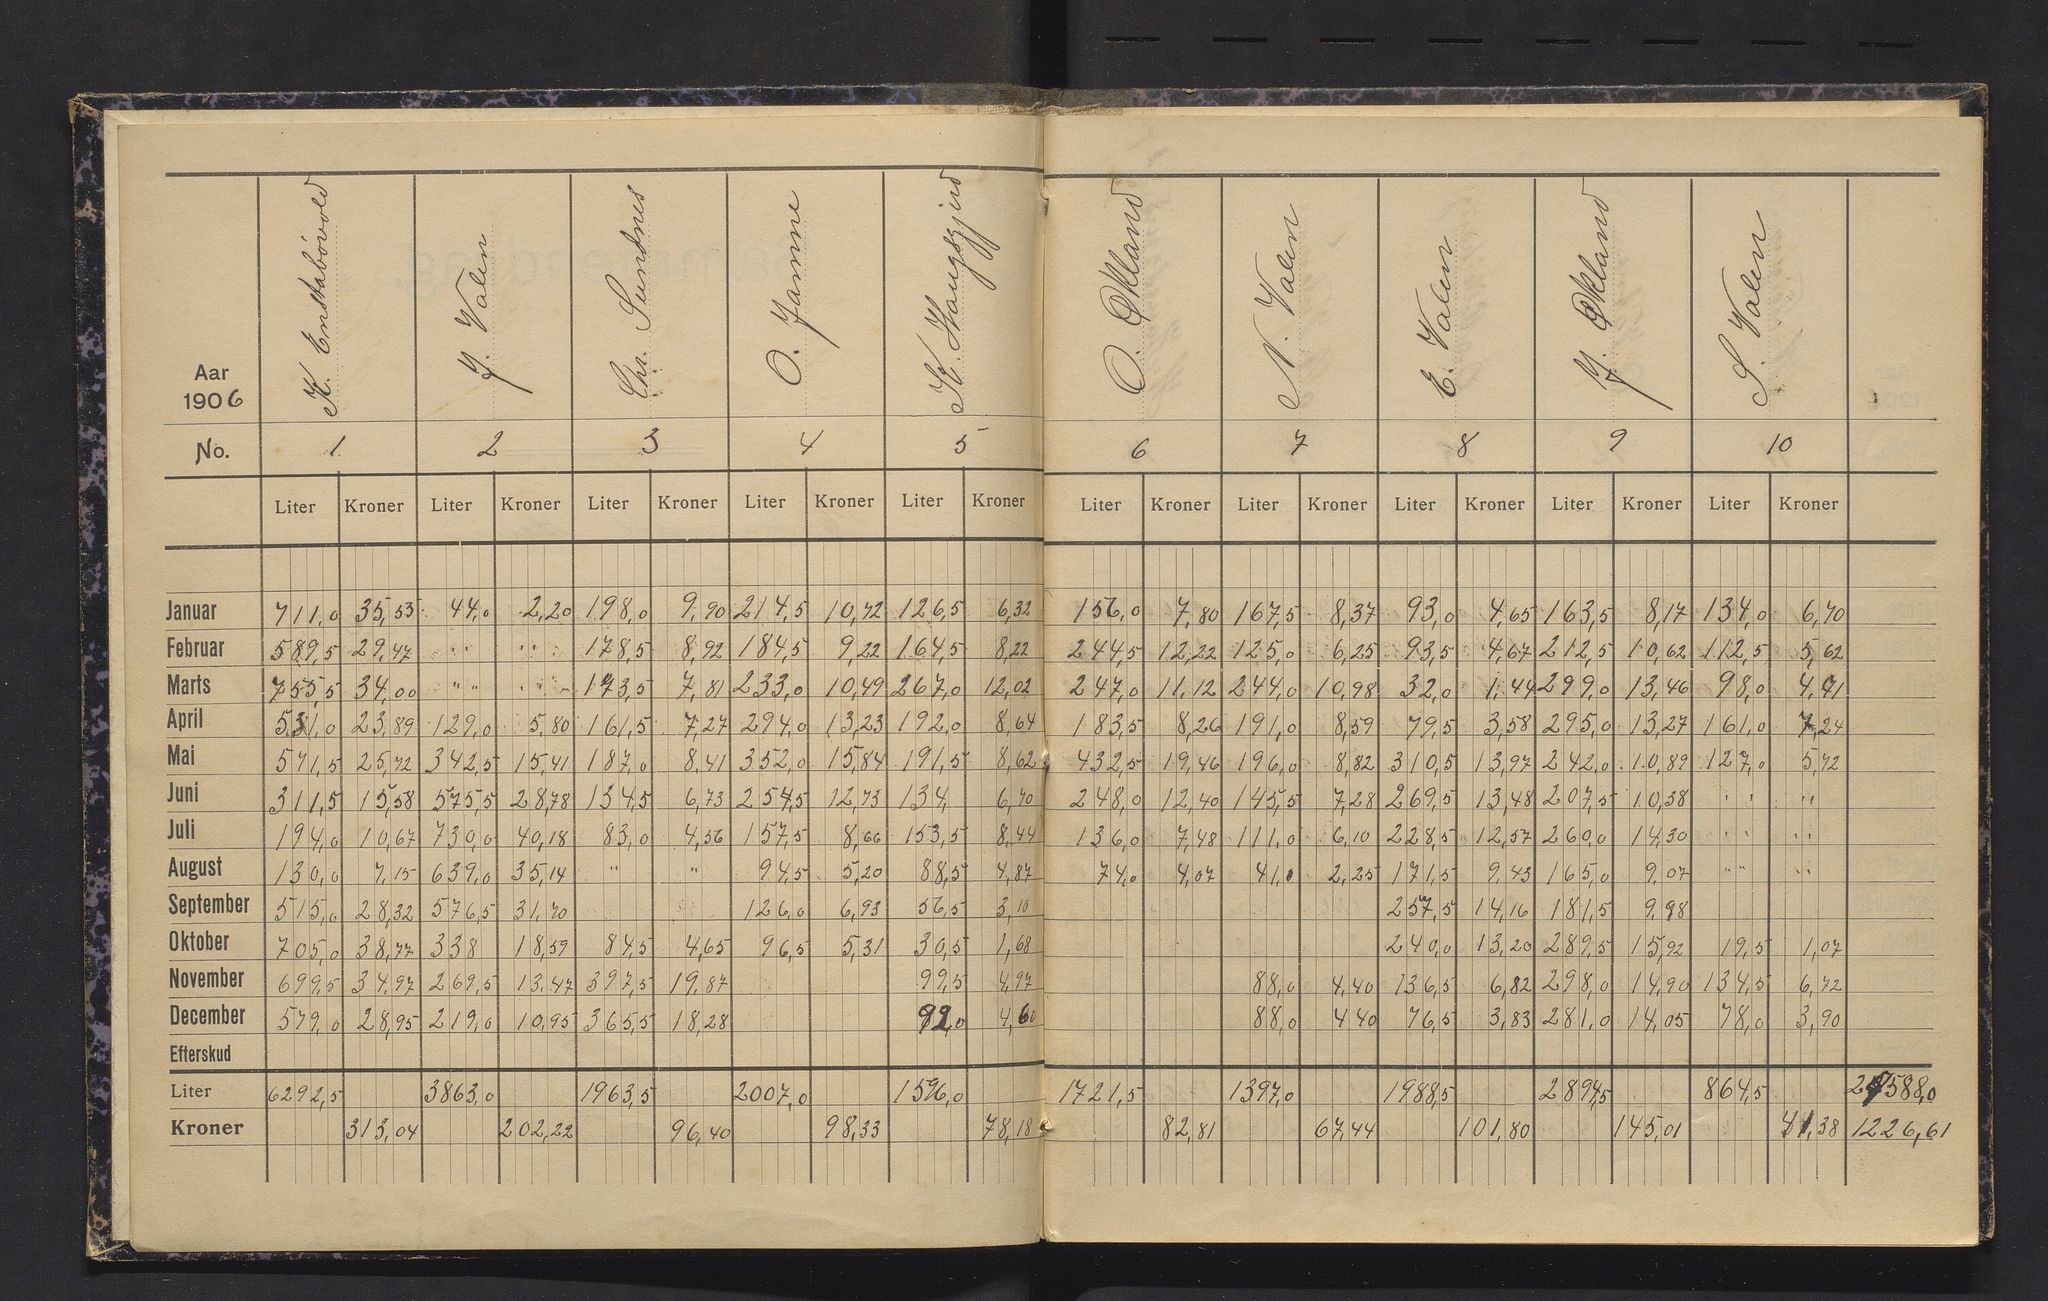 Aar 1906 K. Enstabøvold J. Valen Chr. Sundnes O. Janne K. Haugsgjerd O. Økland N. Valen E. Valen J. Økland S. Valen
No. 1 2 3 4 5 6 7 8 9 10
Liter Kroner Liter Kroner Liter Kroner Liter Kroner Liter Kroner Liter Kroner Liter Kroner Liter Kroner Liter Kroner Liter Kroner
Januar 711,0 35,55 44,0 2,20 198,0 9,90 214,5 10,72 126,5 6,32 156,0 7,80 167,5 8,37 93,0 4,65 163,5 8,17 134,0 6,70
Februar 589,5 29,47 " " " " 178,5 8,92 184,5 9,22 164,5 8,22 244,5 12,22 125,0 6,25 93,5 4,67 212,5 10,62 112,5 5,62
Marts 755,5 34,00 " " " " 173,5 7,81 233,0 10,49 267,0 12,02 247,0 11,12 244,0 10,98 32,0 1,44 299,0 13,46 98,0 4,41
April 531,0 23,89 129,0 5,80 161,5 7,27 294,0 13,23 192,0 8,64 183,5 8,26 191,0 8,59 79,5 3,58 295,0 13,27 161,0 7,24
Mai 571,5 25,72 342,5 15,41 187,0 8,41 352,0 15,84 191,5 8,62 432,5 19,46 196,0 8,82 310,5 13,97 242,0 10,89 127,0 5,72
Juni 311,5 15,58 575,5 28,78 134,5 6,73 254,5 12,73 134, 6,70 248,0 12,40 145,5 7,28 269,5 13,48 207,5 10,38 " " " "
Juli 194,0 10,67 730,0 40,18 83,0 4,56 157,5 8,66 153,5 8,44 136,0 7,48 111,0 6,10 228,5 12,57 260,0 14,30 " " " "
August 130,0 7,15 639,0 35,14 " " 94,5 5,20 88,5 4,87 74,0 4,07 41,0 2,25 171,5 9,43 165,0 9,07 " " " "
September 515,0 28,32 576,5 31,70 126,0 6,93 56,5 3,10 257,5 14,16 181,5 9,98
Oktober 705,0 38,77 338 18,59 84,5 4,65 96,5 5,31 30,5 1,68 240,0 13,20 289,5 15,92 19,5 1,07
November 699,5 34,97 269,5 13,47 397,5 19,87 99,5 4,97 88,0 4,40 136,5 6,82 298,0 14,90 134,5 6,72
December 579,0 28,95 219,0 10,95 365,5 18,28 92,0 4,60 88,0 4 40 76,5 3,83 281,0 14,05 78,0 3,90
Efterskud
Liter 6292,5 3863,0 1963,5 2007,0 1596,0 1721,5 1397,0 1988,5 2894,5 864,5 588,0
Kroner 313,04 202,22 96,40 98,33 78,18 82,81 67,44 101,80 145,01 41,38 1226,61